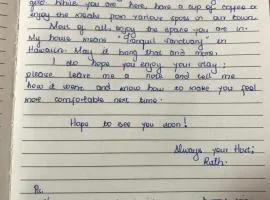 good. While you are here, have a cup of coffee or
enjoy the meals from various spots in our town.
Most of all, enjoy the space you are in.
My house means "Tranquil Sanctuary" in
Hawaiin. May it bring that and more.
I do hope you enjoy your stay;
please leave me a note and tell me
how it went and know how to make you feel
more comfortable next time.
Hope to see you soon!
Always your Host,
Ruth.